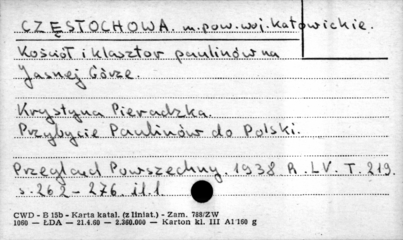 CZĘSTOCHOWA. m.pow.woj.katowickie.
Kościół i klasztor paulinów na
Jasnej Górze.
Krystyna Pieradzka.
Przybycie Paulinów do Polski.
Przegląd Powszechny. 1938. R. LV. T. 219.
s. 262 - 276 il. 1
CWD - B 15b - Karta katal. (z liniat.) - Zam. 788/ZW
1060 — ŁDA — 21.4.60 — 2.360.000 — Karton kl. III A1 160 g